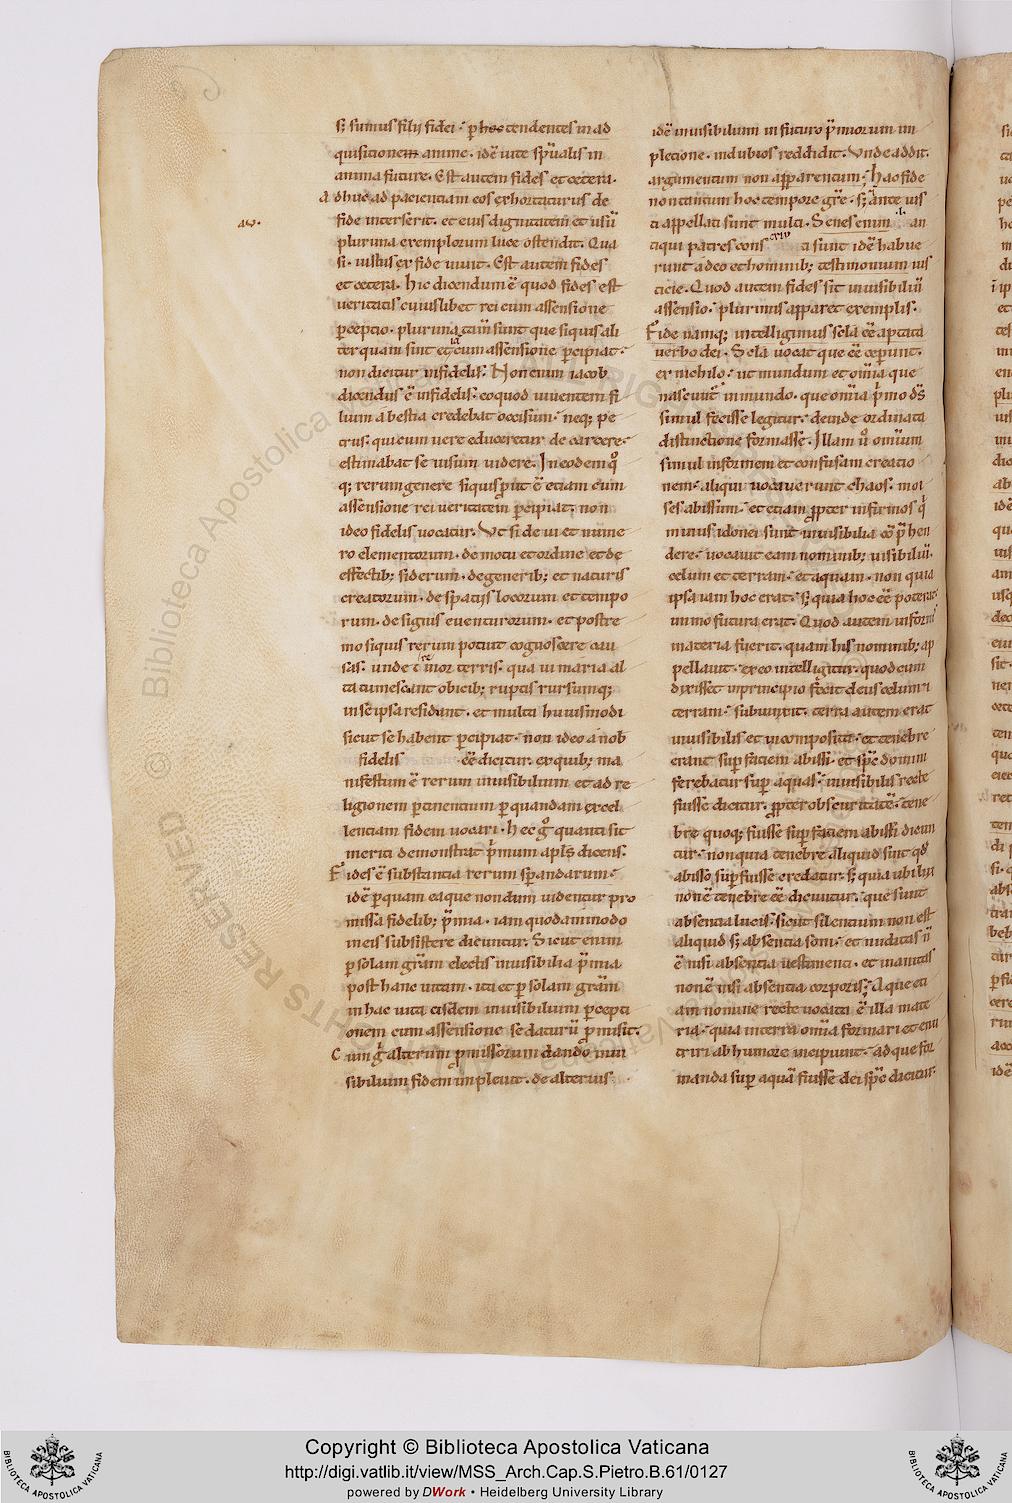 s; sumus filij fidei · p hoc tendentes in ad
quisitionem anime · idē uite spūalis in
anima future · Est autem fides et cetera ·
adhuc ad pacientiam eos exhortaturus de
aw ·
fide interserit · et eius dignitatem et usū
plurima exemplorum luce ostendit · Qua
si · iustus ex fide uiuit · Est autem fides
et cetera · hic dicendum ē quod fides est
ueritatis cuiuslibet rei cum assensione
pceptio · plurima tam̄ sunt que siquis ali
ter quam sint etiā cum assensione pcipiat ·
non dicitur infidelis · Non enim iacob
dicendus ē infidelis · eo quod uiuentem fi
lium a bestia credebat occisum · neq; pe
trus · qui cum uere educeretur de carcere ·
estimabat se uisum uidere · In eodem
q; rerum genere siquis put ē etiam cum
assensione rei ueritatem pcipiat · non
ideo fidelis uocatur · Ut si de ui et nume
ro elementorum · de motu et ordine et de
effectib; siderum · de generib; et naturis
creatorum · de spatijs locorum et tempo
rum · de signis euenturorum · et postre
mo siquis rerum potuit cognoscere cau
sas · unde tremor terris · qua ui maria al
ta tumescant obicib; ruptis rursumq;
in se ipsa residant · et multa huiusmodi
sicut se habent pcipiat · non ideo a nob
fidelis ēē dicitur · ex quib; ma
nifestum ē rerum inuisibilium et ad re
ligionem ptinentium p quandam excel
lentiam fidem uocari · hec g° quanti sit
meriti demonstrat pmum apls dicens ·
Fides ē substantia rerum spandarum ·
idē p quam ea que nondum uidentur pro
missa fidelib; pmia · iam quodammodo
in eis subsistere dicuntur · Sicut enim
p solam grām electis inuisibilia pmia
post hanc uitam · ita et p solam grām
in hac uita eisdem inuisibilium pcepti
onem cum assensione se daturū pmisit ·
Cum g alterum pmissorum dando inui
sibilium fidem impleuit · de alterius
idē inuisibilium in futuro pmiorum im
pletione · indubios reddidit · Unde addit ·
argumentum non apparentum · hac fide
non tantum hoc tempore grē · s; ante ius
ti appellati sunt multi · Senes enim · i · an
tiqui patres consecuti sunt idē habue
runt a deo et hominib; testimonium ius
ticie · Quod autem fides sit inuisibiliū
assensio · plurimis apparet exemplis ·
Fide namq; intelligimus scla ēē aptata
uerbo dei · Scla uocat que ēē ceperunt ·
ex nichilo · ut mundum et omīa que
nascunt in mundo · que omīa pmo ds
simul fecisse legitur · deinde ordinata
distinctione formasse · Illam u° omium
simul informem et confusam creatio
nem · aliqui uocauerunt chaos · moi
ses abissum · et etiam ppter infirmos q
minus idonei sunt inuisibilia cōphen
dere · uocauit eam nominib; uisibiliū ·
celum et terram · et aquam · non quia
ipsa iam hoc erat · s; quia hoc ēē poterat ·
immo futura erat · Quod autem informis
materia fuerit · quam his nominib; ap
pellauit · ex eo intelligitur · quod cum
dixisset in principio fecit deus celum 7
terram · subiunxit · terra autem erat
inuisibilis et incomposita · et tenebre
erant sup faciem abissi · et spc domini
ferebatur sup aquas · inuisibilis recte
fuisse dicitur · ppter obscuritatē · tene
bre quoq; fuisse sup faciem abissi dicun
tur · non quia tenebre aliquid sint qd
abisso supfuisse credatur · s; quia ubi lux
non ē tenebre ēē dicuntur · que sunt
absentia lucis · sicut silentium non est
aliquid s; absentia soni · et nuditas n̄
ē nisi absentia uestimenti · et inanitas
non ē nisi absentia corporis · Aque eti
am nomine recte uocata ē illa mate
ria · quia in terra omīa formari et enu
triri ab humore incipiunt · ad que for
manda sup aquā fuisse dei spc dicitur ·
Copyright © Biblioteca Apostolica Vaticana
http://digi.vatlib.it/view/MSS_Arch.Cap.S.Pietro.B.61/0127
powered by DWork • Heidelberg University Library